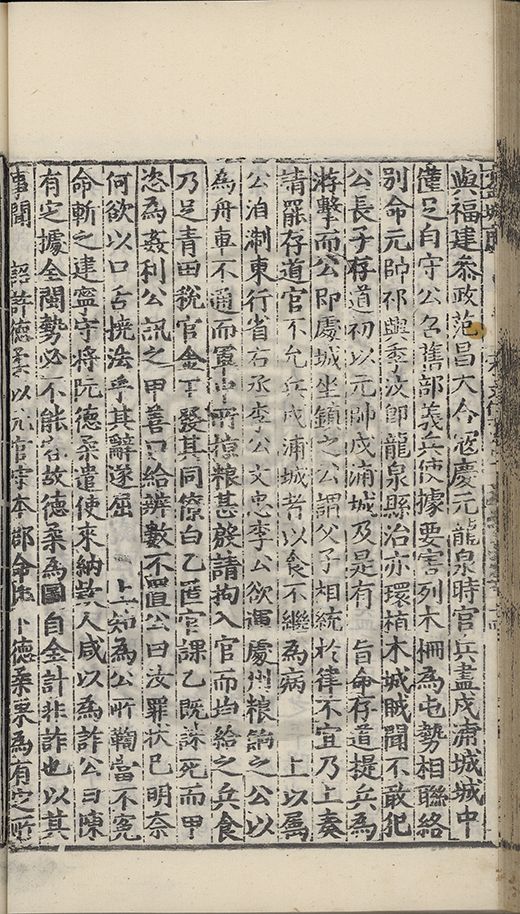 與福建參政范昌大令寇慶元龍泉時官兵盡戍浦城城中
僅足自守公召舊部義兵使據要害列木柵為屯勢相聯絡
別命元帥祁與季汶即龍泉縣治亦環植木城賊聞不敢犯
公長子存道初以元帥戍浦城及是有 旨命存道提兵為
游擊而公即處城坐鎮之公謂父子相統於律不宜乃上奏
請罷存道官不允兵戍浦城者以食不繼為病 上以為
公泊淛東行省右丞李公文忠李公欲運處州粮餉之公以
為舟車不通而軍中所掠粮甚殷請拘入官而均給之兵食
乃足青田稅官金 發其同僚白乙匿官課乙既誅死而甲
恣為姦利公訊之甲善口給辨數不置公曰汝罪狀已明奈
何欲以口舌撓法乎其辭遂屈 上知為公所鞫當不寃
命斬之建寧守將阮德柔遣使來納款人咸以為詐公曰陳
有定據全閩勢必不能容故德柔為圖自全計非詐也以其
事聞 詔許德柔以元官守本郡命 下德柔果為有定所